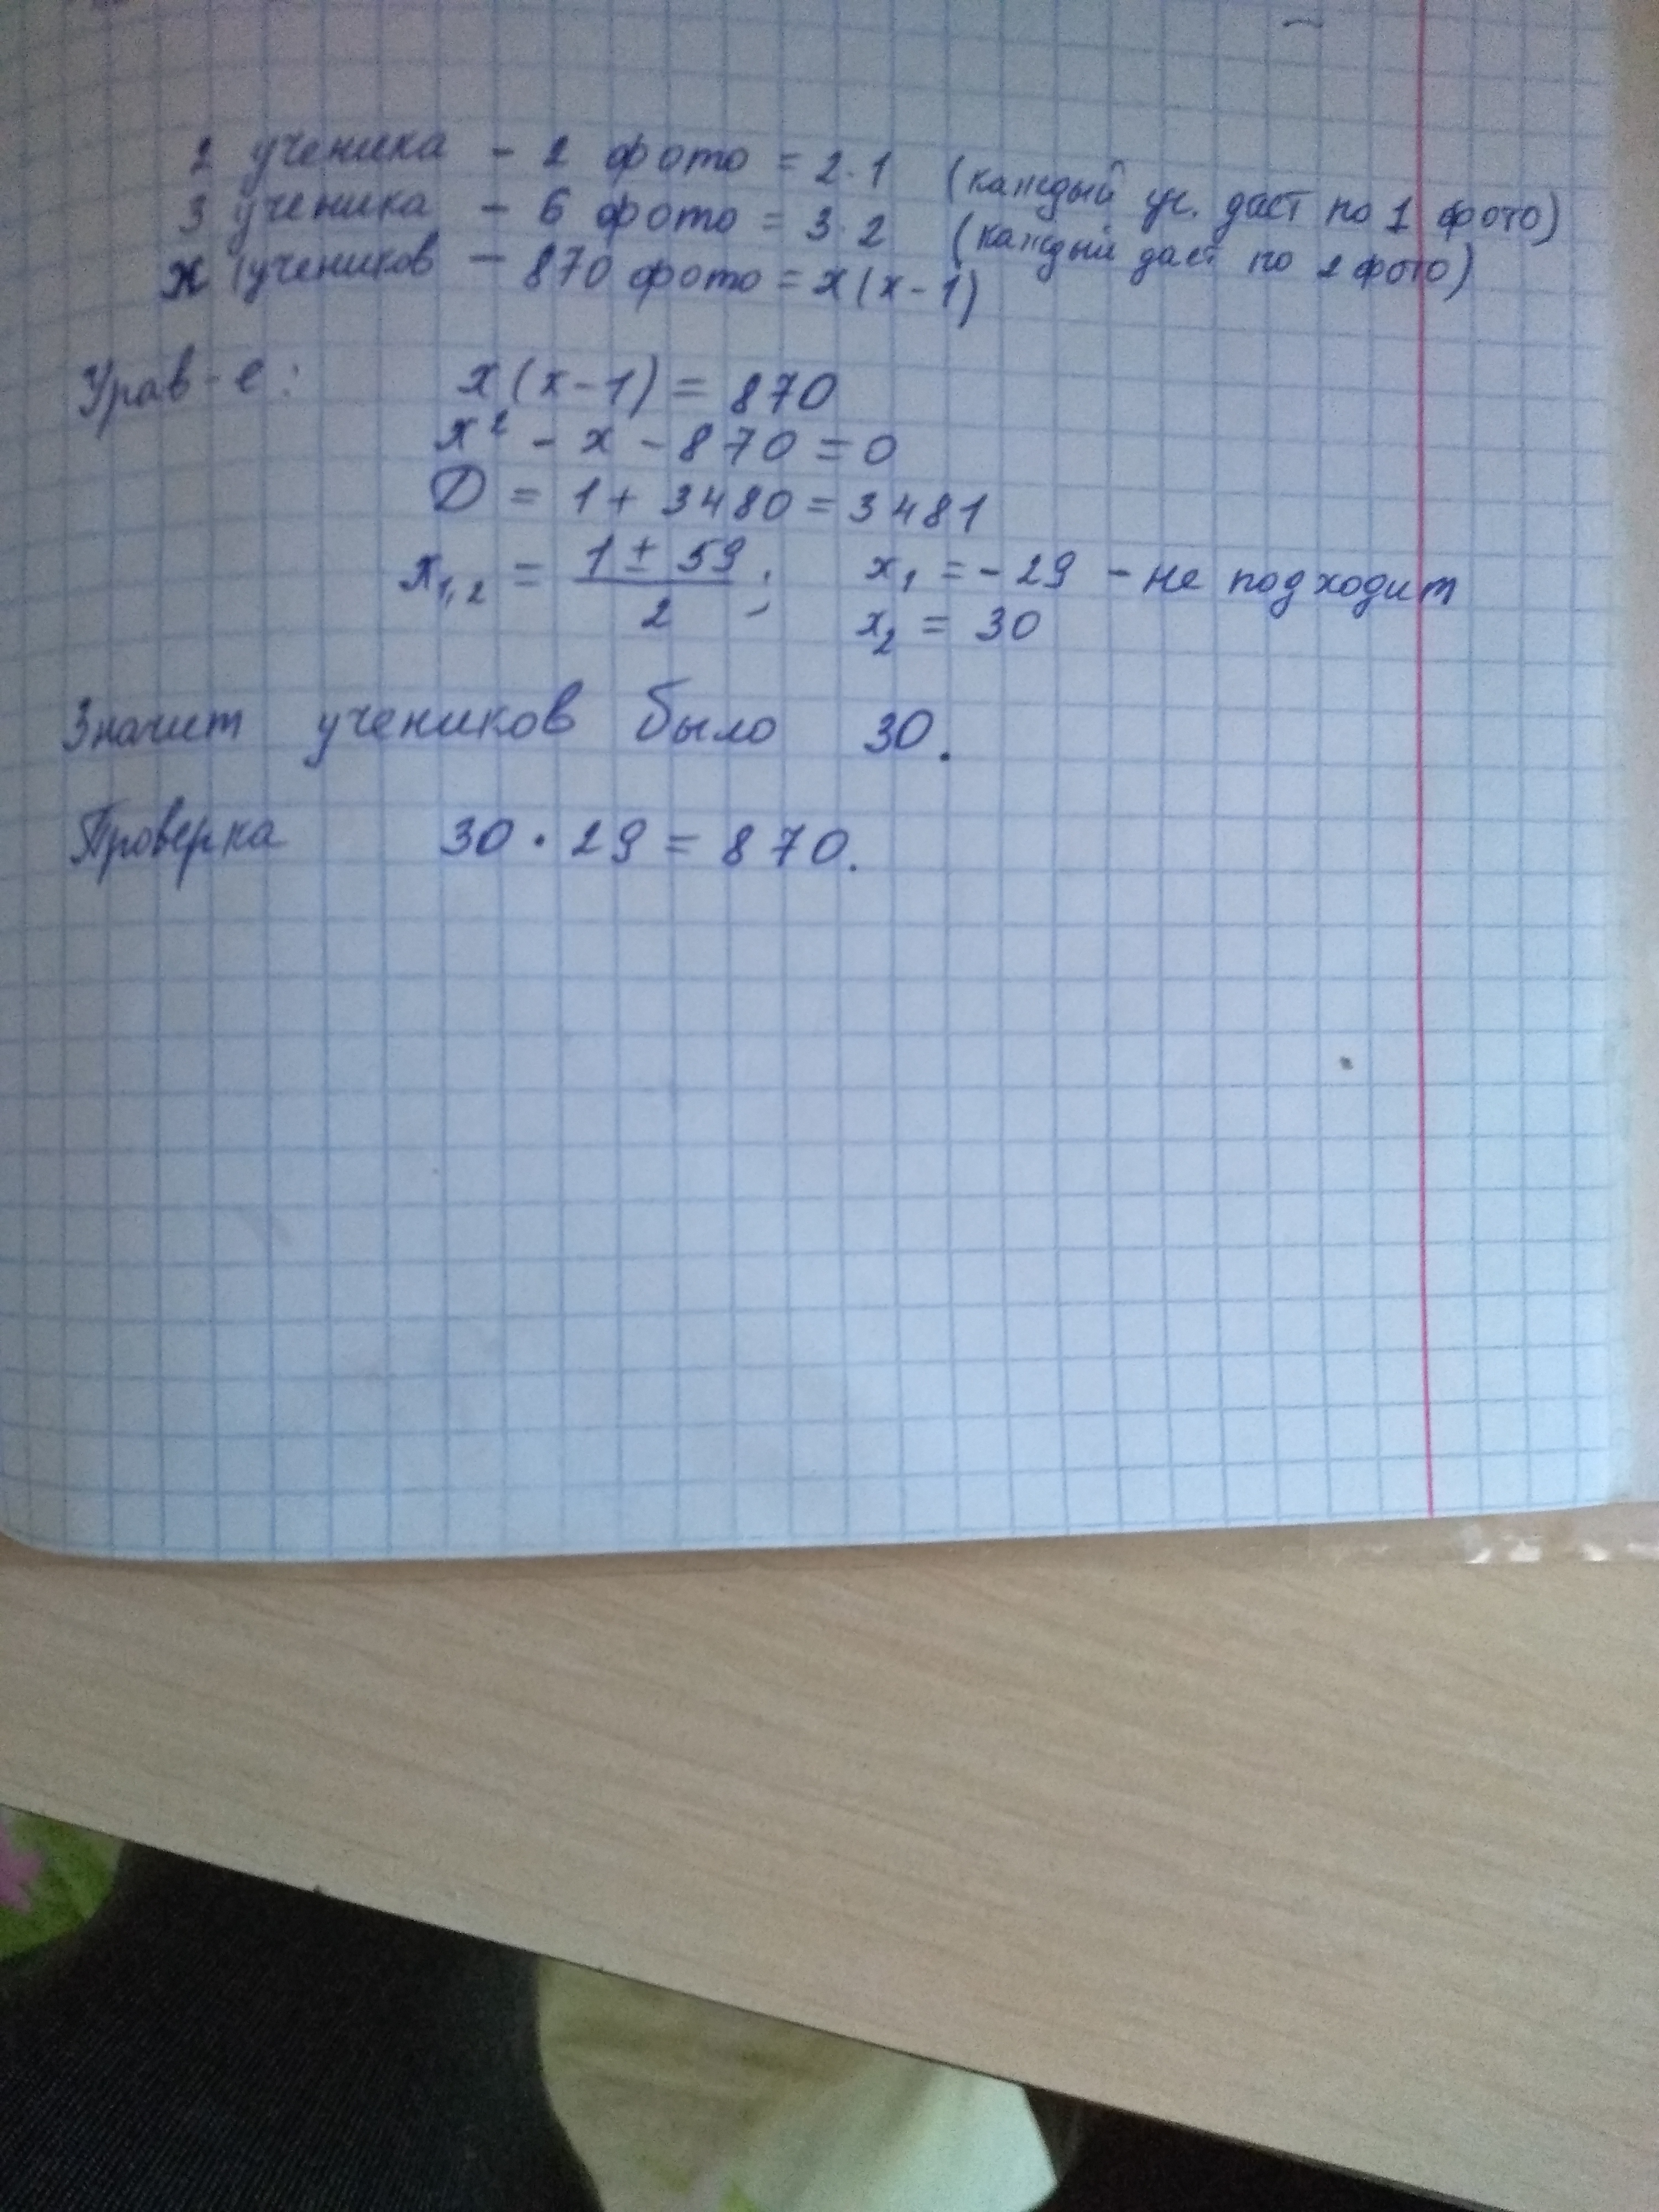 2 ученика - 2 фото = 2·1 (каждый уч. даст по 1 фото)
3 ученика - 6 фото = 3·2 (каждый даст по 2 фото)
x учеников - 870 фото = x(x-1)
Урав-е: x(x-1) = 870
x² - x - 870 = 0
D = 1 + 3480 = 3481
x₁,₂ = (1 ± 59)/2 ; x₁ = -29 - не подходит
x₂ = 30
Значит учеников было 30.
Проверка 30 · 29 = 870.